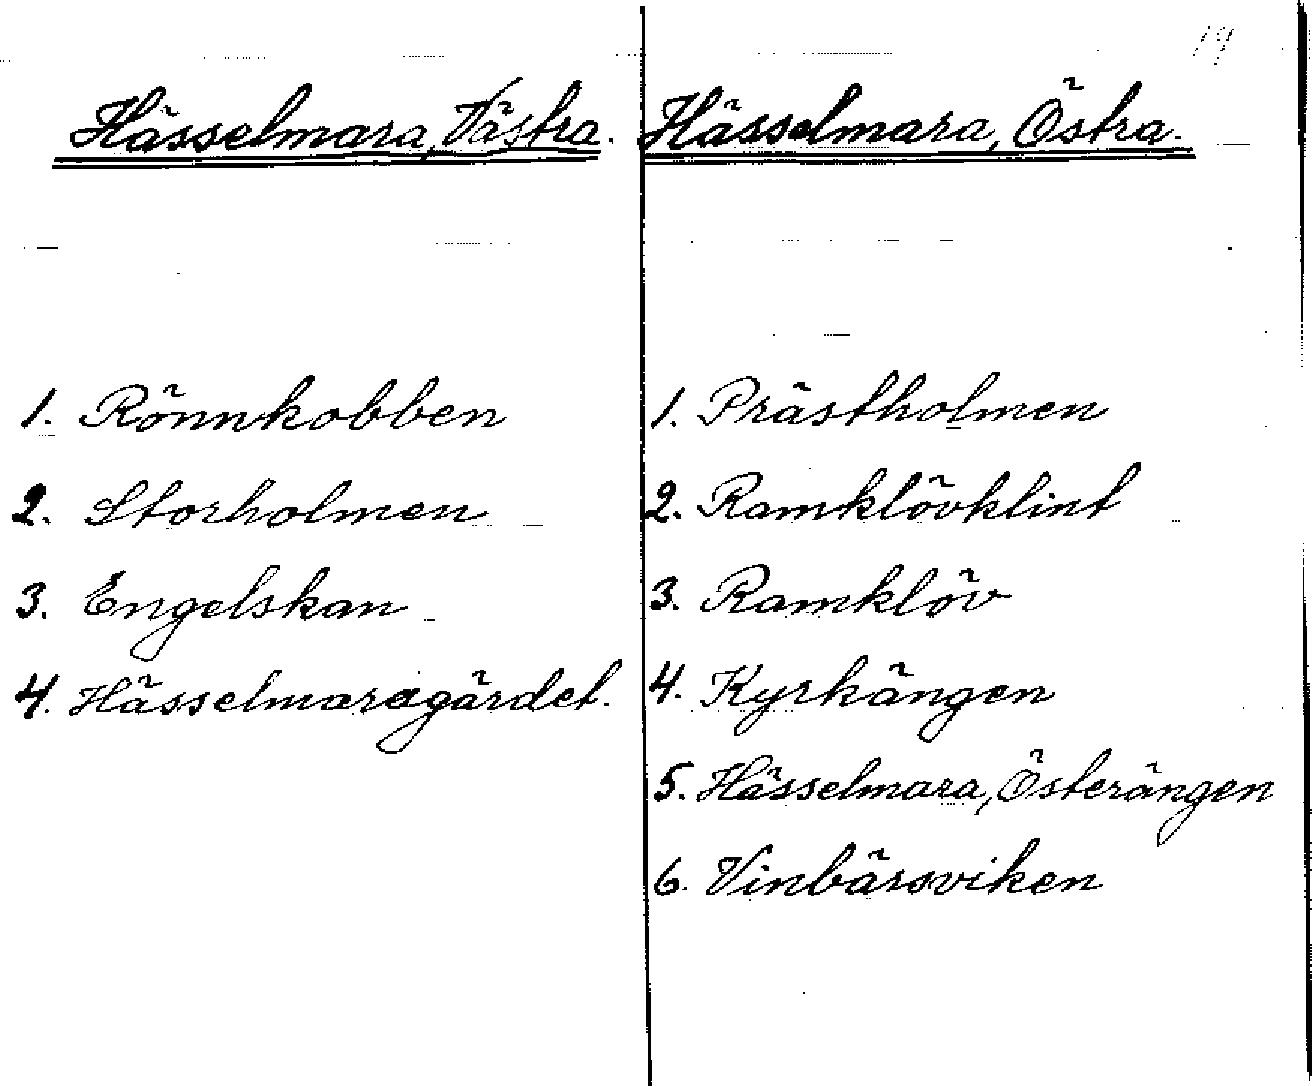 Hässelmara, Västra.
1. Rönnkobben
2. Storholmen
3. Engelskan
4. Hässelmaragärdet.
Hässelmara, Östra.
1. Prästholmen
2. Ramklövklint
3. Ramklöv
4. Kyrkängen
5. Hässelmara, Österängen
6. Vinbärsviken